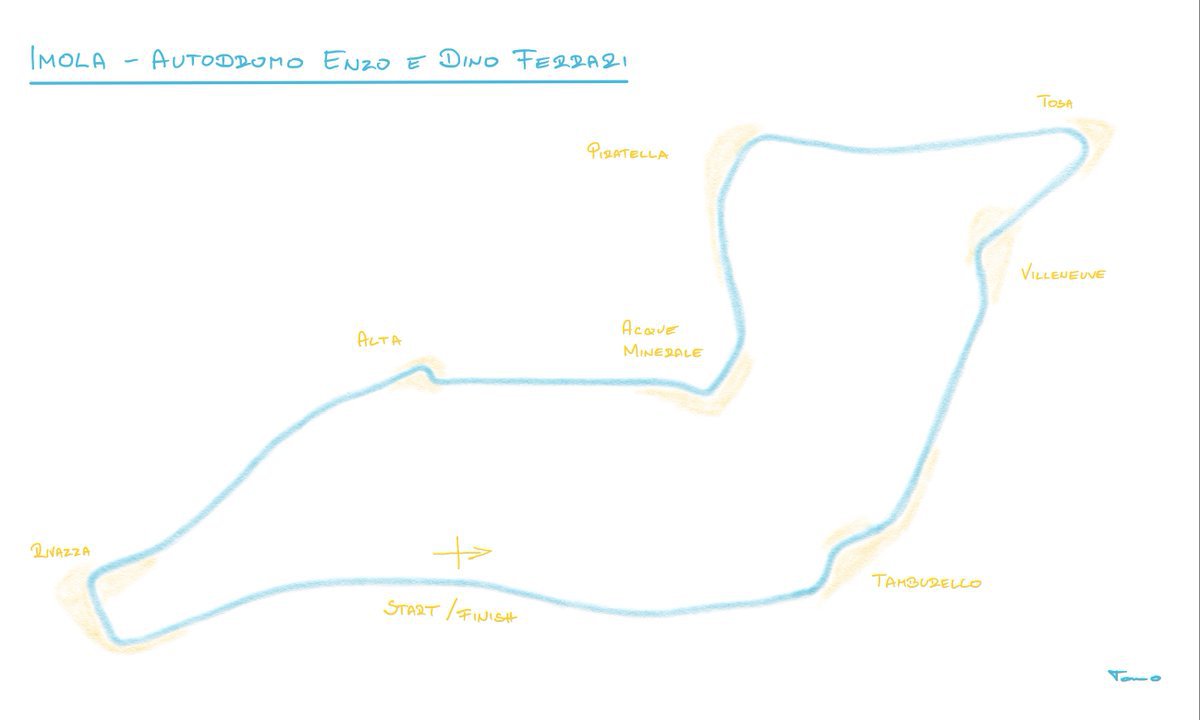 IMOLA - AUTODROMO ENZO E DINO FERRARI
TOSA
PIRATELLA
VILLENEUVE
ACQUE
MINERALE
ALTA
RIVAZZA
START/FINISH
TAMBURELLO
Tomo